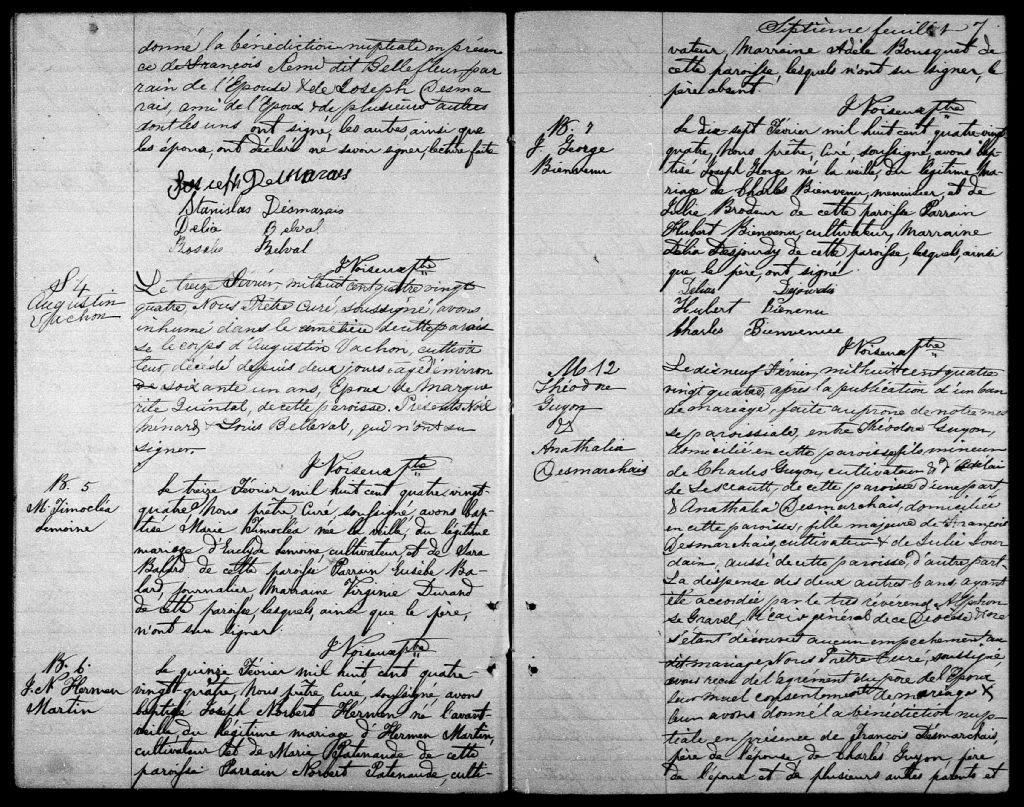 donné la bénédiction nuptiale en présen
ce de François Remi dit Bellefleur par
rain de l'Epouse & de Joseph Desma
rais, ami de l'Epoux & de plusieurs autres
dont les uns, ont signé, les autres, ainsi que
les époux, ont déclaré ne savoir signer, lecture faite
Joseph Desmarais
Stanislas Desmarais
Délia Belval
Rosalie Belval
J. Noiseux ptre
S 4
Augustin
Vachon
Le treize Février, mil huit cent quatre vingt
quatre, Nous Prêtre Curé, soussigné, avons
inhumé dans le cimetière de cette parois
se le corps d'Augustin Vachon, cultiva
teur, décédé depuis deux jours, agé d'environ
de soixante un ans, Epoux de Margue
rite Quintal, de cette paroisse. Présents Noël
Ménard & Louis Belleval, qui n'ont su
signer.
J. Noiseux ptre
B. 5
M. Timoclía
Lemoine
Le treize Février mil huit cent quatre-vingt-
quatre, Nous prêtre, Curé, soussigné, avons bap-
tisé Marie Timocléa née la veille, du légitime
mariage d' Lemoine, cultivateur, et de Sara
de cette paroisse Parrain Eusèbe Ba-
lard, journalier Marraine Virginie Durand
de cette paroisse, lesquels, ainsi que le père,
n'ont su signer.
J. Noiseux ptre
B. 6.
J. N. Herman
Martin
Le quinze Février mil huit cent quatre-
vingt-quatre, Nous prêtre, Curé, soussigné, avons
baptisé Joseph Norbert Herman né l'avant-
veille, du légitime mariage d'Herman Martin,
cultivateur et de Marie Patenaude de cette
paroisse Parrain Norbert Patenaude, culti-
Septième feuillet 7
vateur, Marraine Adèle Bousquet de
cette paroisse, lesquels n'ont su signer, le
père absent.
J. Noiseux ptre
B. 7
J. George
Bienvenu
Le dix-sept Février mil huit cent quatre-vingt
quatre, Nous prêtre, Curé, soussigné, avons bap
tisé Joseph George né la veille, du légitime ma
riage de Charles Bienvenu, menuisier, et de
Julie Brodeur de cette paroisse Parrain
Hubert Bienvenu, cultivateur, Marraine
Délia Desjourdy de cette paroisse, lesquels, ainsi
que le père, ont signé.
Délias Dejourdis
Hubert Bienenu
Charles Bienvenue
J. Noiseux ptre
M 12
Théodore
Guyon
&
Anathalia
Desmarchais
Le dix neuf Février, mil huit cent quatre
vingt quatre, après la publication d'un ban
de mariage, faite au prône de notre mes
se paroissiale, entre Théodore Guyon,
domicilié en cette paroisse, fils mineur
de Charles Guyon, cultivateur &
de Lescault, de cette paroisse d'une part
& Anathalia Desmarchais, domiciliée
en cette paroisse, fille majeure de François
Desmarchais, cultivateur & de Julie Jour
dain, aussi de cette paroisse, d'autre part.
La despense des deux autres bans ayant
été accordée par le très révérend Alphon
se Gravel, Vicaire général de ce Diocèse & ne
s'étant découvert aucun empêchement au
dit mariage Nous Prêtre Curé, soussigné,
avons reçu de l'agrément du père de l'Epoux
leur muel consentement de mariage &
leur avons donné la bénédiction nup
tiale en présence de François Desmarchais,
père de l'épouse, de Charles Guyon, père
de l'époux et de plusieurs autres parents et